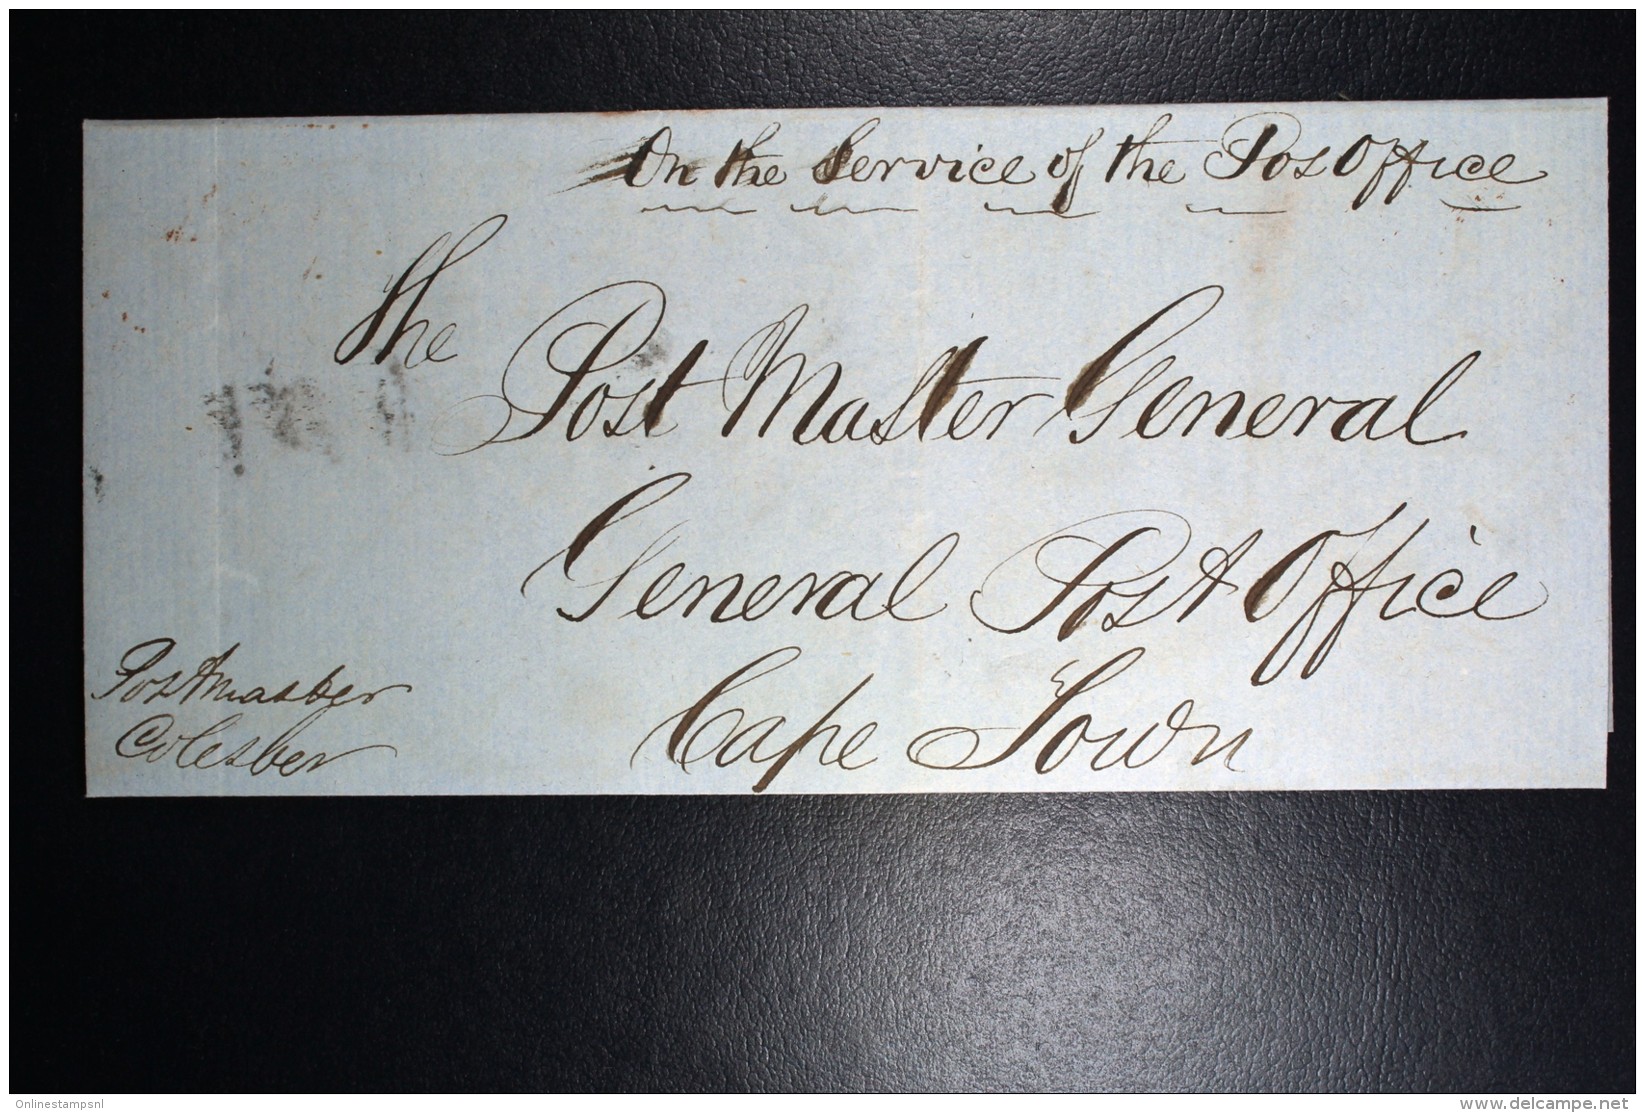 On the Service of the PosOffice
The
Post Master General
General Post Office
Cape Town
Postmaster
Colesber
Onlinestampsnl
http://www.delcampe.net